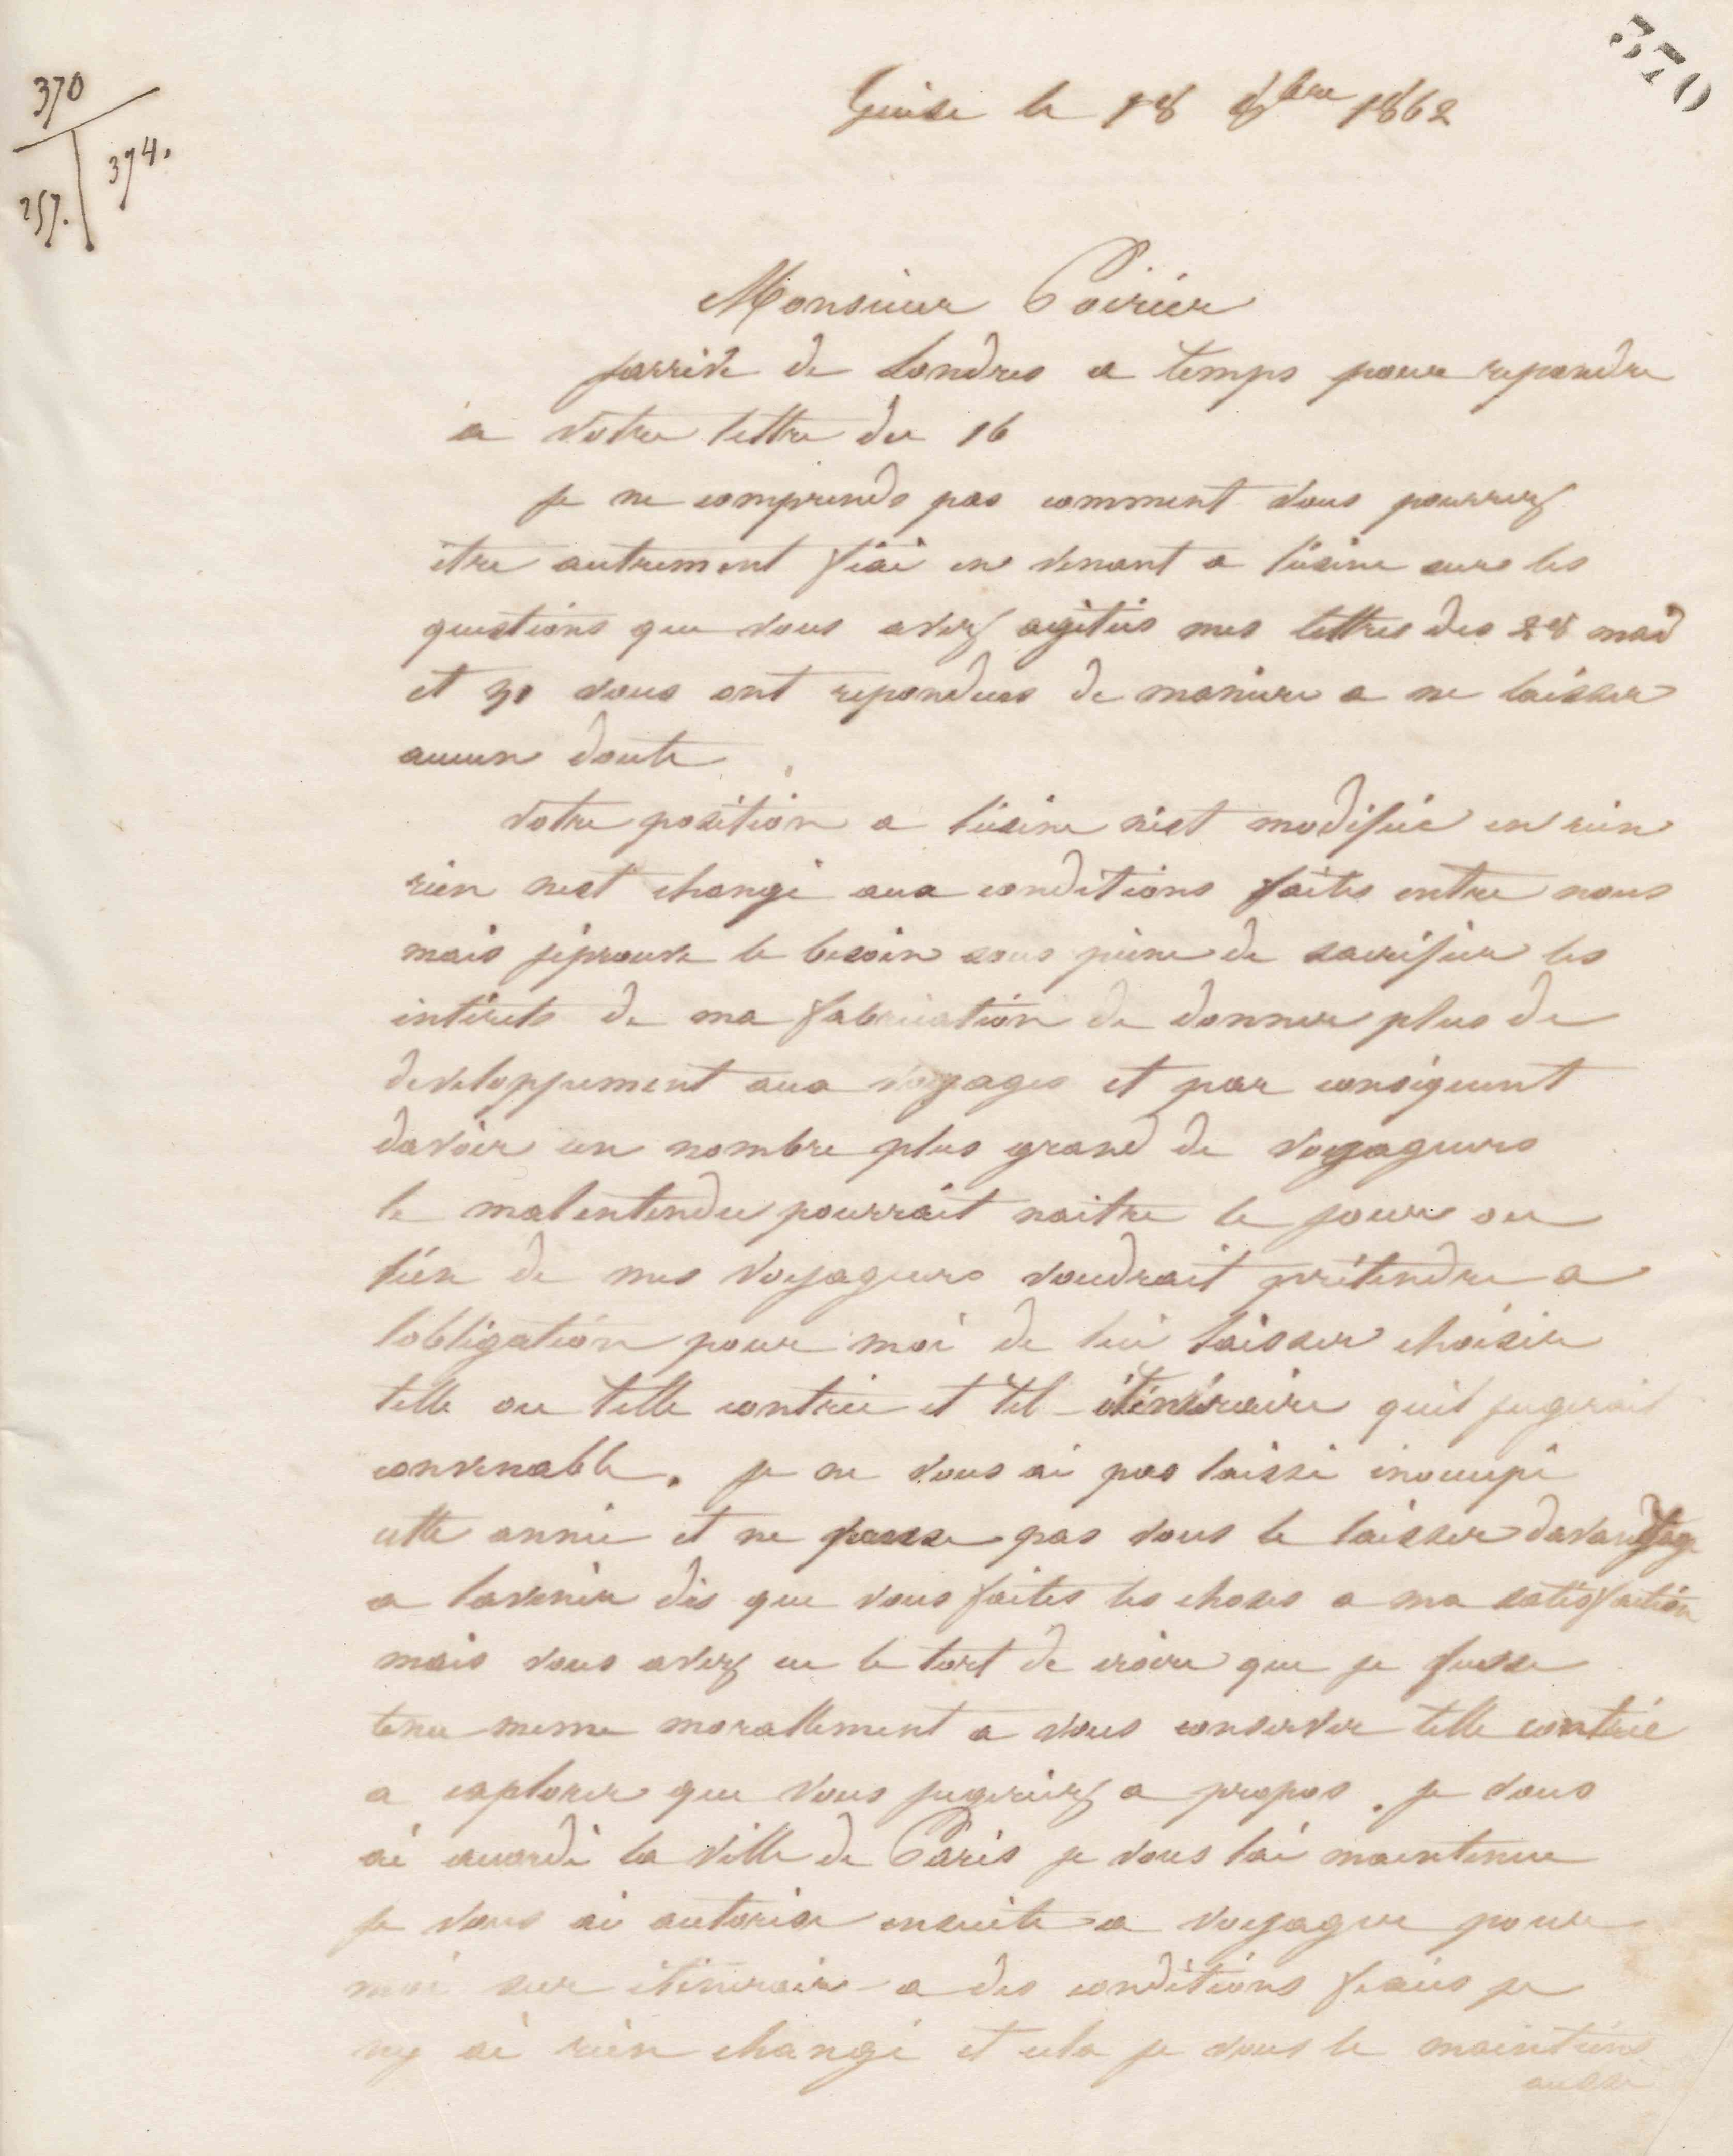 370
370
257.
374.
Guise le 18 8bre 1862
Monsieur Poirier
jarrive de Londres a temps pour repondre
a votre lettre du 16
je ne comprends pas comment vous pourrez
être autrement fixé en venant a l'usine sur les
questions que vous avez agitées mes lettres des 28
et vous ont repondues de maniere a ne laisser
aucun doute
votre position a l'usine n'est modifiée en rien
rien nest changé aux conditions faites entre nous
mais j'éprouve le besoin sous peine de sacrifier les
intérets de ma fabrication de donner plus de
developpement aux voyages et par consequent
davoir un nombre plus grand de voyageurs
le malentendu pourrait naitre le jour ou
l'un de mes voyageurs voudrait prétendre a
lobligation pour moi de lui laisser choisir
telle ou telle contrée et tel itinéraire quil jugerait
convenable. je ne vous ai pas laissé inoccupé
cette année et ne pense pas vous le laisser davantage
a lavenir dès que vous faites les choses a ma satisfaction
mais vous avez eu le tort de croire que je fusse
tenu meme morallement a vous conserver telle contrée
a explorer que vous jugeriez a propos. je vous
ai accordé la ville de Paris je vous lai maintenue
je vous ai autorisé ensuite a voyager pour
moi sur itineraire a des conditions fixées je
ny ai rien changé et cela je vous le maintiens
aussi